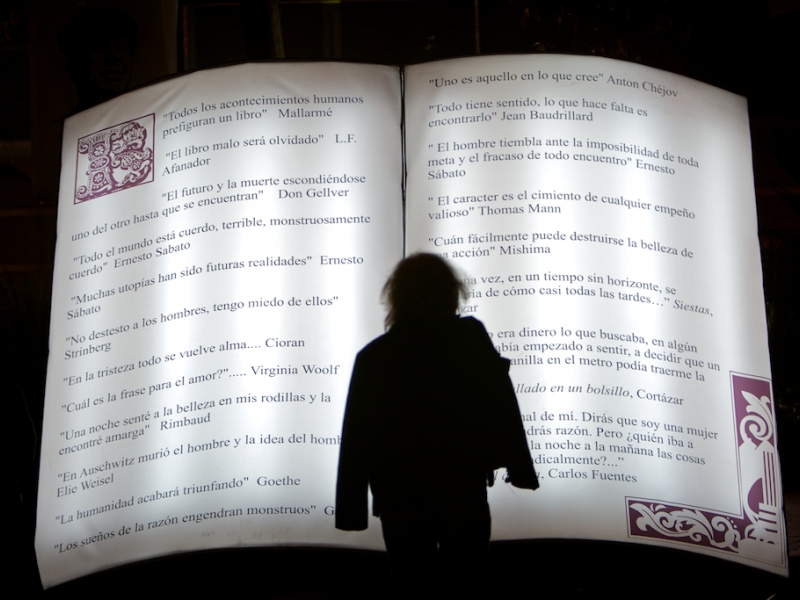 "Todos los acontecimientos humanos
prefiguran un libro" Mallarmé
"El libro malo será olvidado" L.F.
Afanador
"El futuro y la muerte escondiéndose
uno del otro hasta que se encuentran" Don Gellver
"Todo el mundo está cuerdo, terrible, monstruosamente
cuerdo" Ernesto Sabato
"Muchas utopias han sido futuras realidades" Ernesto
Sábato
"No destesto a los hombres, tengo miedo de ellos"
Strinberg
"En la tristeza todo se vuelve alma.... Cioran
"Cuál es la frase para el amor?"..... Virginia Woolf
"Una noche senté a la belleza en mis rodillas y la
encontré amarga" Rimbaud
"En Auschwitz murió el hombre y la idea del
Elie Weisel
"La humanidad acabará triunfando" Goethe
"Los sueños de la razón engendran monstruos"
"Uno es aquello en lo que cree" Anton Chéjov
"Todo tiene sentido, lo que hace falta es
encontrarlo" Jean Baudrillard
" El hombre tiembla ante la imposibilidad de toda
meta y el fracaso de todo encuentro" Ernesto
Sábato
" El caracter es el cimiento de cualquier empeño
valioso" Thomas Mann
"Cuán fácilmente puede destruirse la belleza de
acción" Mishima
vez, en un tiempo sin horizonte, se
de cómo casi todas las tardes…" Siestas,
era dinero lo que buscaba, en algún
empezado a sentir, a decidir que un
en el metro podía traerme la
en un bolsillo, Cortázar
de mi. Dirás que soy una mujer
razón. Pero ¿quién iba a
la noche a la mañana las cosas
Carlos Fuentes